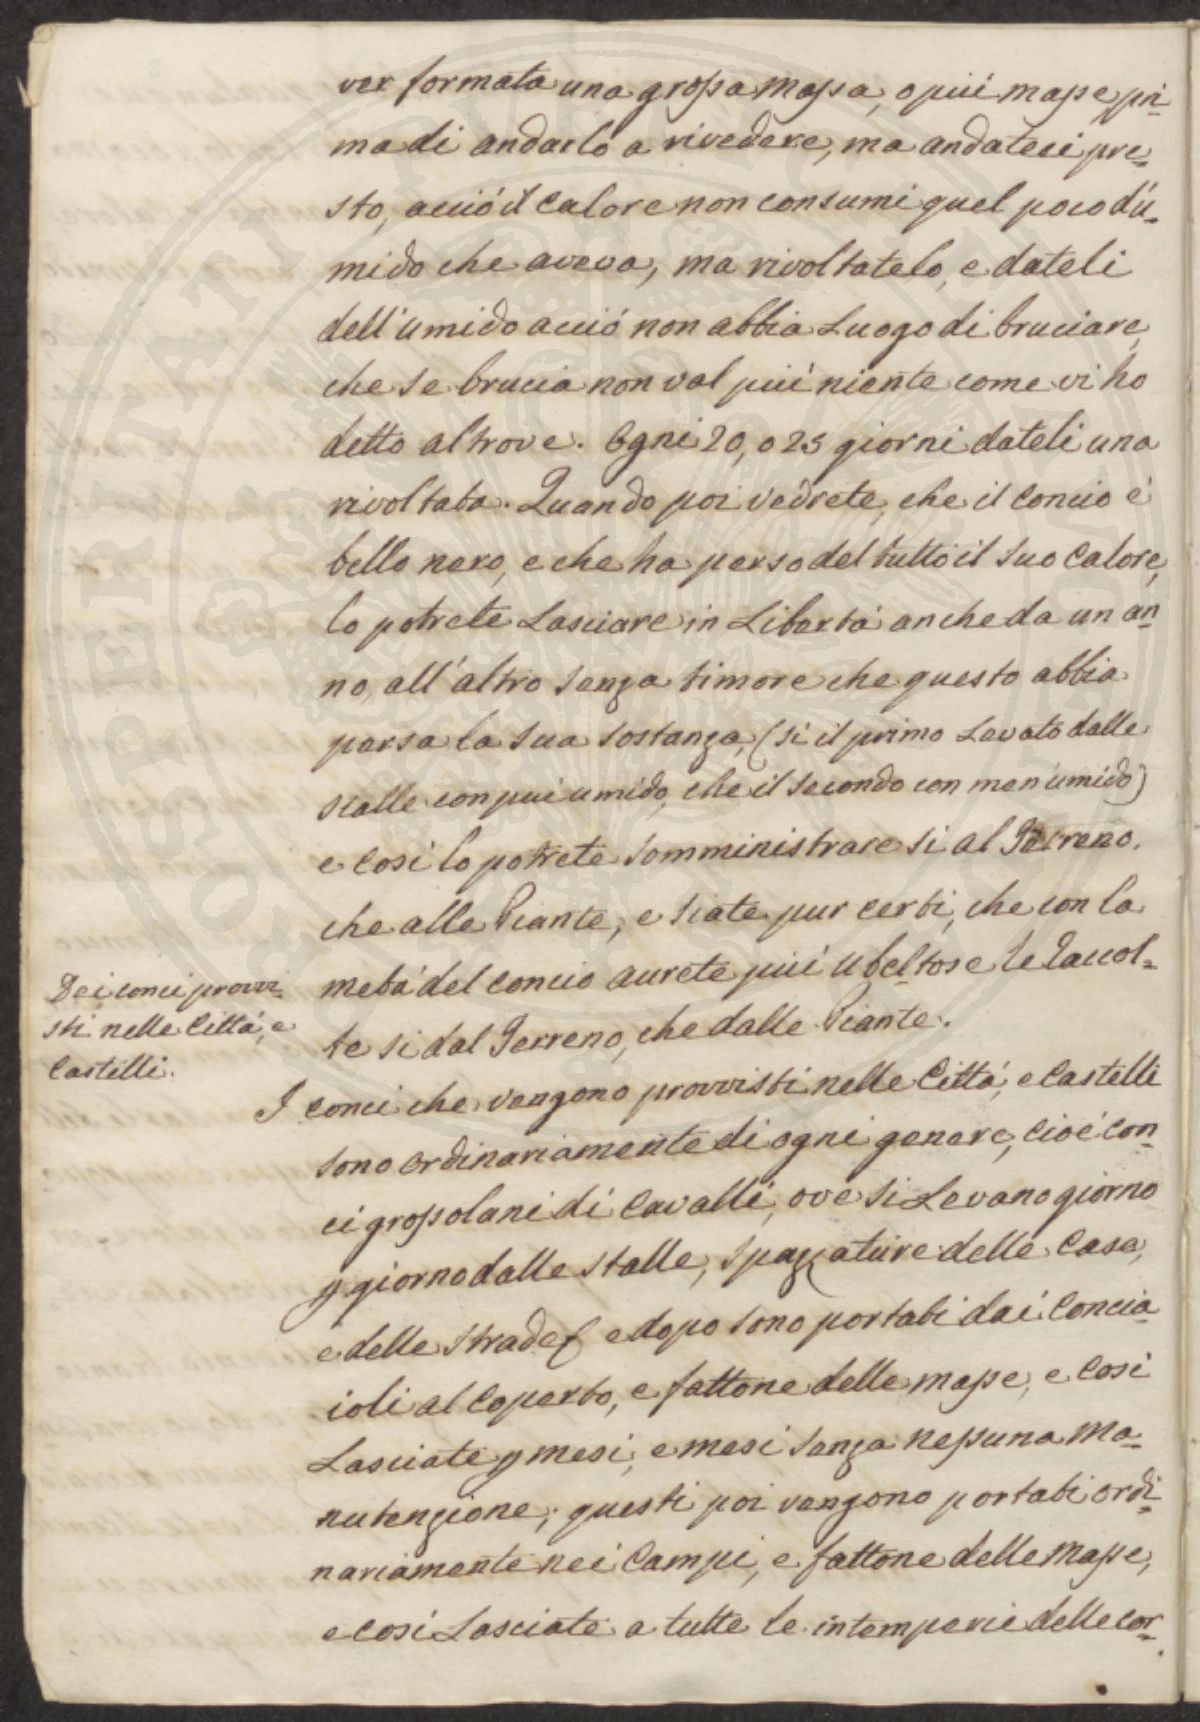 ver formata una grossa massa, o piú masse pri-
ma di andarlo a rivedere, ma andateci pre-
sto, acció il Calore non consumi quel poco d'u-
mido che aveva, ma rivoltatelo, e dateli
dell'umido acció non abbia Luogo di bruciare,
che se brucia non val piú niente come vi ho
detto altrove. Ogni 20, o 25 giorni dateli una
rivoltata. Quando poi vedrete, che il Concio é
bello nero, e che ha perso del tutto il suo Calore,
lo potrete Lasciare in Libertá anche da un an-
no, all'altro senza timore che questo abbia
persa la sua sostanza, (si il primo Levato dalle
stalle con piú umido, che il secondo con men'umido)
e cosi lo potrete somministrare si al Terreno,
che alle Piante, e siate pur certi, che con la
metá del concio aurete piú ubeltose le Raccol-
te si dal Terreno, che dalle Piante.
Dei conci provvi-
sti nelle Cittá, e
Castelli.
I conci che vengono provvisti nelle Cittá, e Castelli
sono ordinariamente di ogni genere, cioé con-
ci grossolani di Cavalli, ove si Levano giorno
p giorno dalle stalle, spazzature delle Case,
e delle strade, e dopo sono portati dai Concia-
ioli al Coperto, e fattone delle masse, e Cosi
Lasciate p mesi, e mesi senza nessuna ma-
nutenzione; questi poi vengono portati ordi-
nariamente nei Campi, e fattone delle Masse,
e cosi Lasciate a tutte le intemperie delle cor-